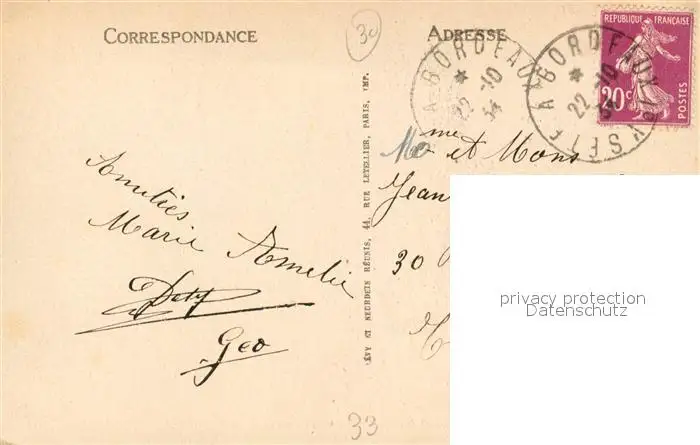 CORRESPONDANCE
ADRESSE
30
RÉPUBLIQUE FRANÇAISE
20c
POSTES
BORDEAUX
22-10
34
A BORDEAUX
22-10
34
Amitiés
Marie Amelie
Geo
33
LÉVY ET NEURDEIN RÉUNIS, 44, RUE LETELLIER, PARIS, IMP.
me et Mons
Jean
30
privacy protection
Datenschutz